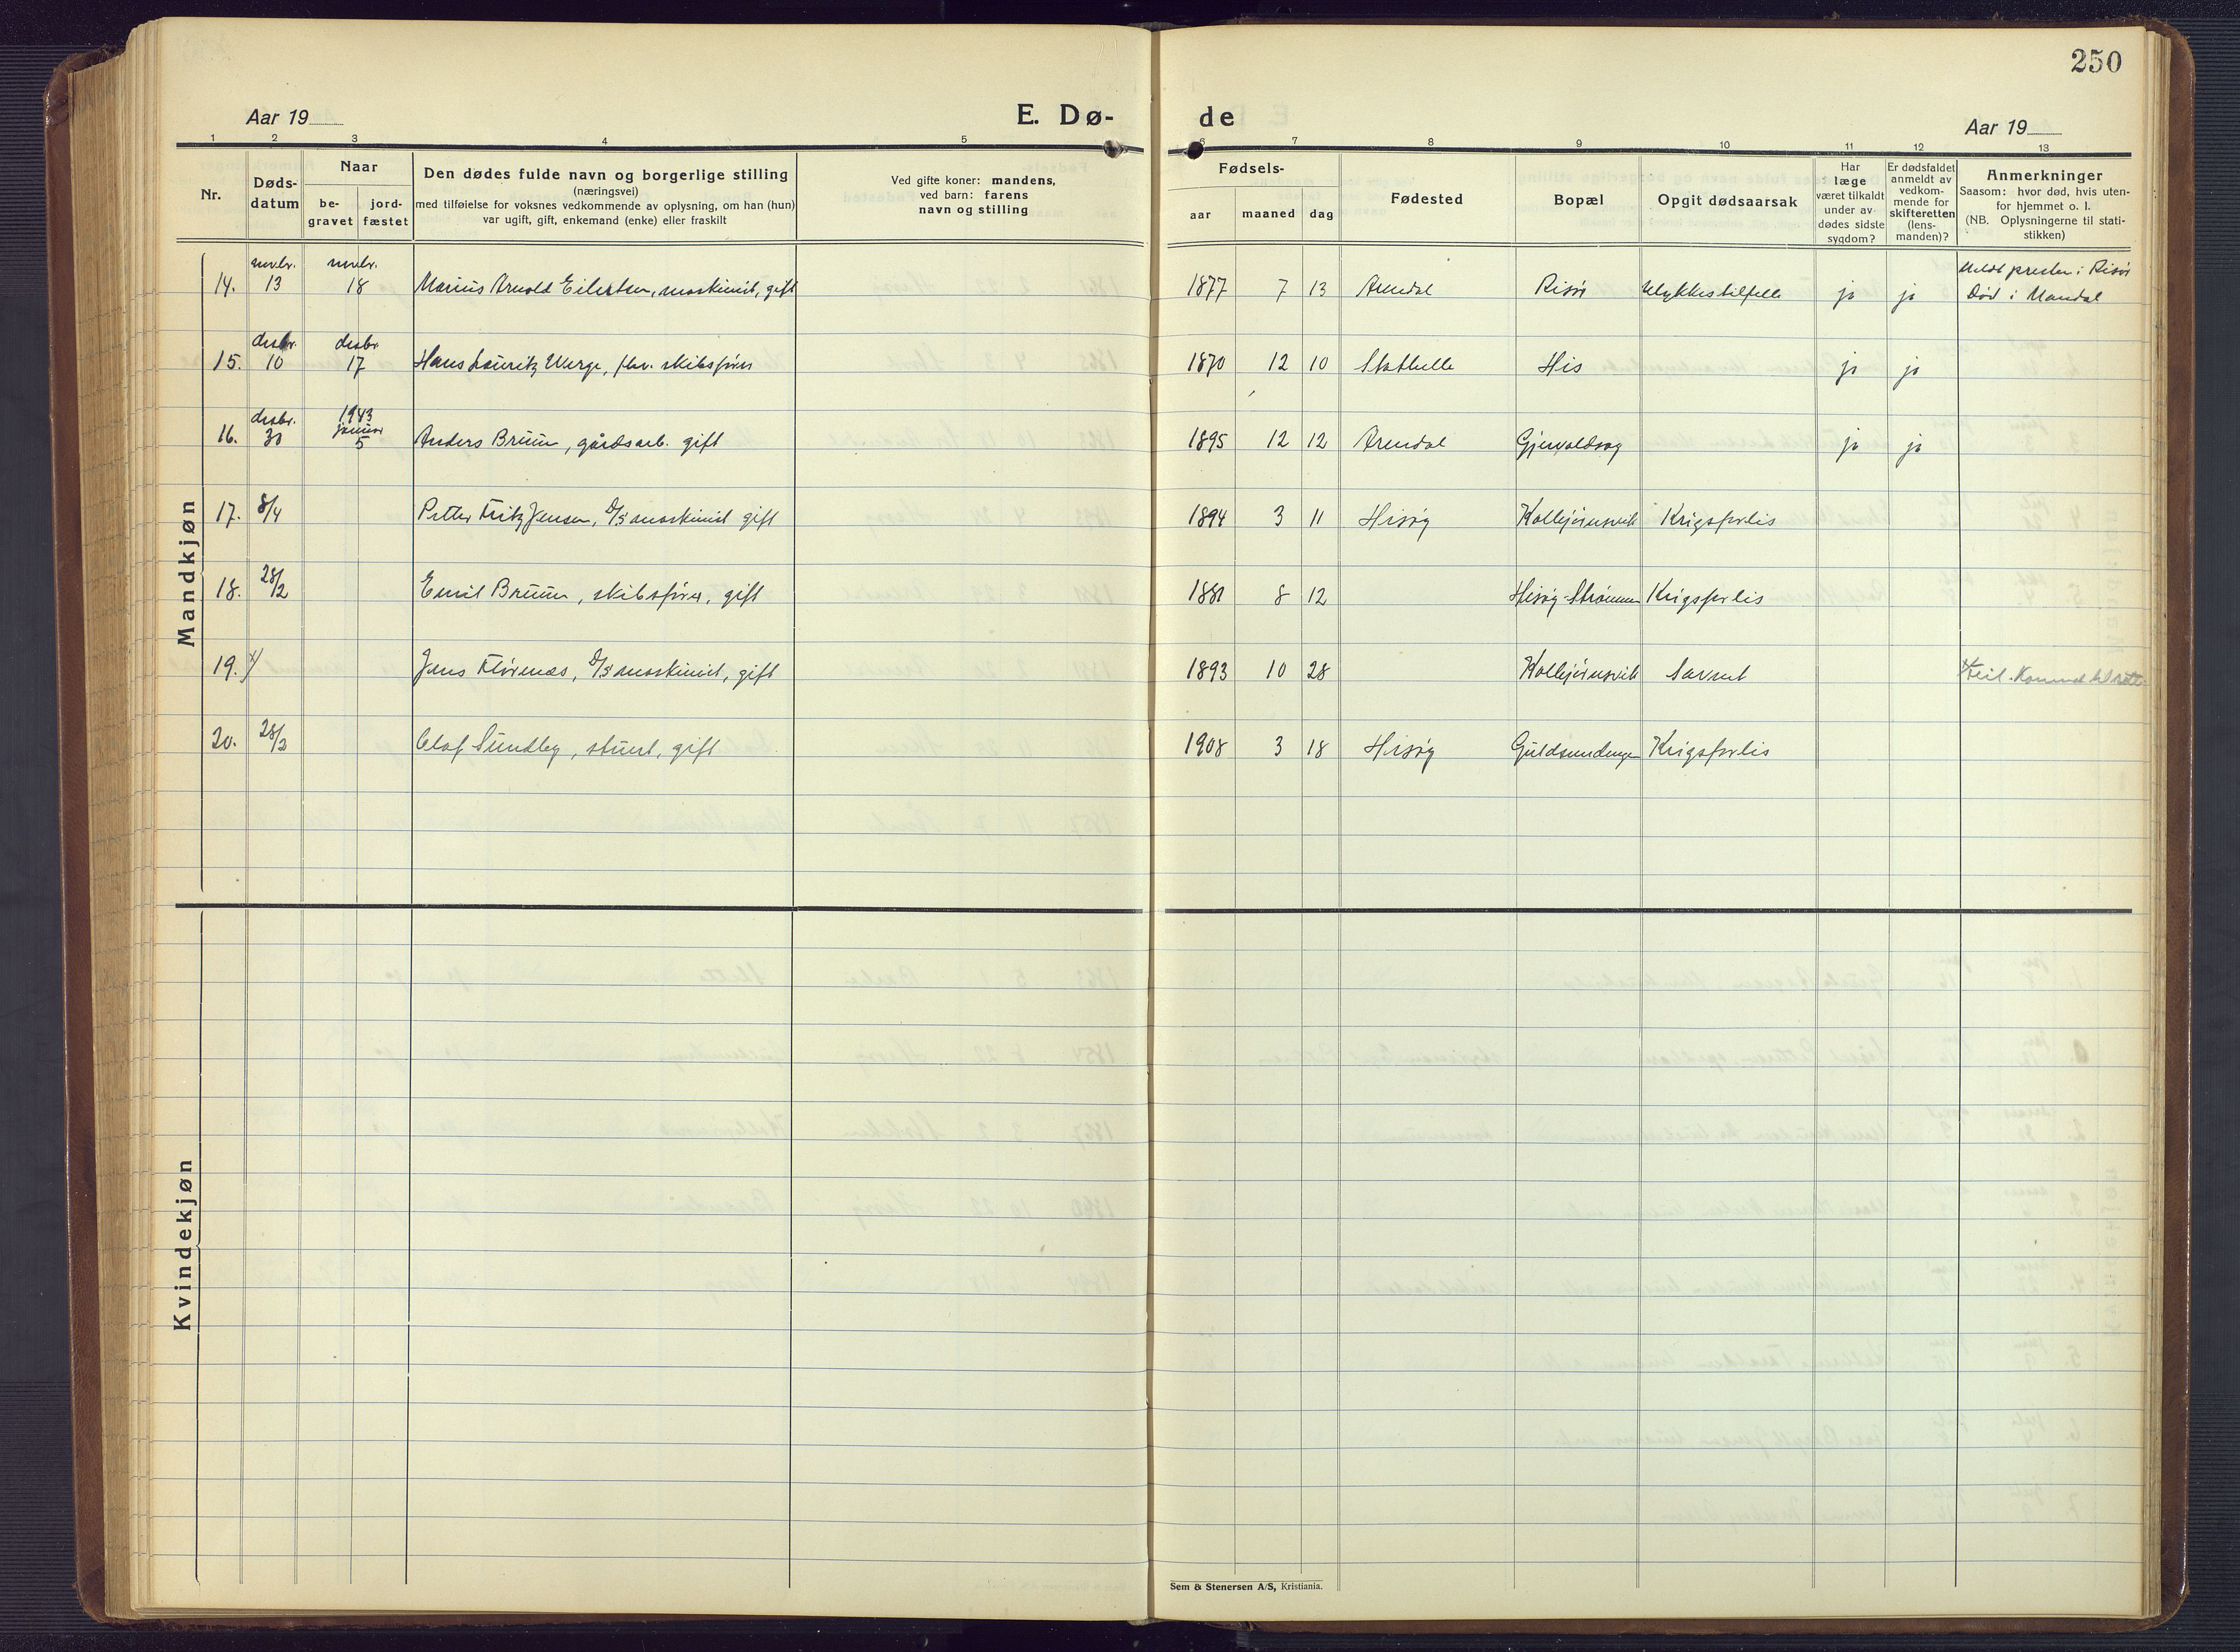 250
Aar 19
E. Dø-
de
Aar 19
1 2 3 4 5
6 7 8 9 10 11 12 13
Nr.
Døds-
datum
Naar
be-
gravet
jord-
fæstet
Den dødes fulde navn og borgerlige stilling
(næringsvei)
med tilføielse for voksnes vedkommende av oplysning, om han (hun)
var ugift, gift, enkemand (enke) eller fraskilt
Ved gifte koner: mandens,
ved barn: farens
navn og stilling
Fødsels-
aar
maaned
dag
Fødested
Bopæl
Opgit dødsaarsak
Har
læge
været tilkaldt
under av-
dødes sidste
sygdom?
Er dødsfaldet
anmeldt av
vedkom-
mende for
skifteretten
(lens-
manden)?
Anmerkninger
Saasom: hvor død, hvis uten-
for hjemmet o. l.
(NB. Oplysningerne til stati-
stikken)
Mandkjøn
novbr. novbr.
14. 13 18 Marius Arnold Eilertsen, maskinist, gift 1877 7 13 Arendal Risør Ulykkestilfelle ja ja Meldt presten i Risør
Død i Mandal
desbr. desbr.
15. 10 17 Hans Lauritz Werge, fhv. skibsfører 1870 12 10 Stathelle His ja ja
desbr. 1943
januar
16. 30 5 Anders Bruun, gårdsarb. gift 1895 12 12 Arendal Gjervoldsøy ja ja
17. 8/4 Petter Fritz Jensen, D/S maskinist gift 1894 3 11 Hisøy Kolbjørnsvik Krigsforlis
18. 28/2 Emil Bruun, skibsfører, gift 1881 8 12 Hisøy-Strømmen Krigsforlis
19. x) Jens Flørenæs, D/S maskinist, gift 1893 10 28 Kolbjørnsvik Savnet x) Feil. Kommet til rette
20. 28/2 Olaf Sundby, stuert, gift 1908 3 18 Hisøy Guldsmedengen Krigsforlis
Kvindekjøn
Sem & Stenersen A/S, Kristiania.